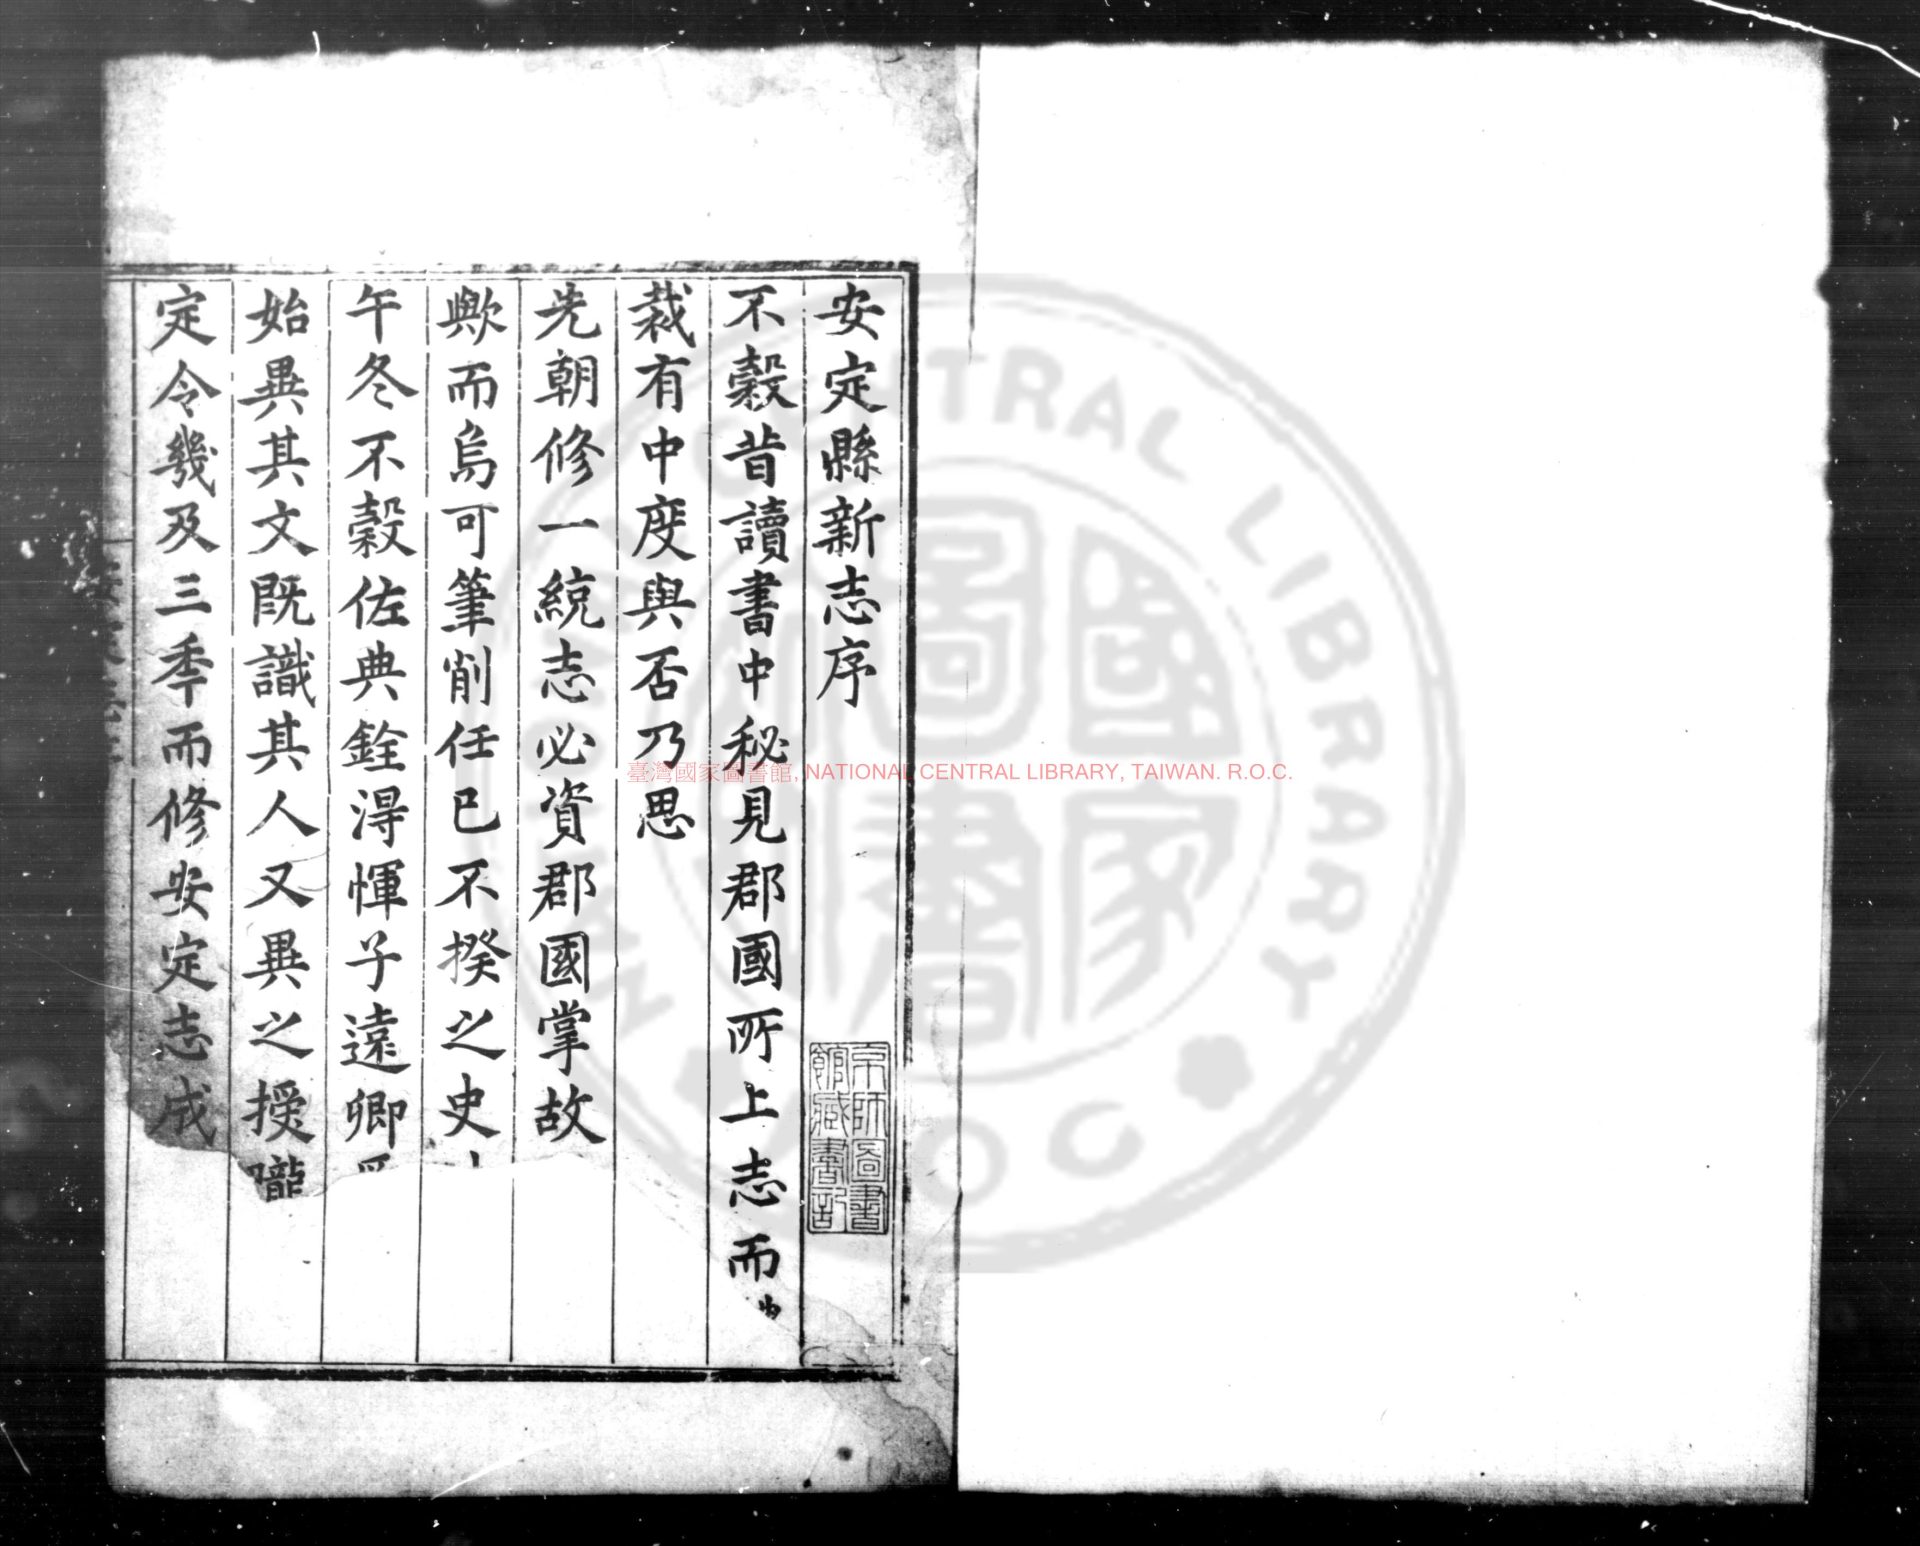 安定縣新志序
不穀昔讀書中秘見郡國所上志而
裁有中度與否乃思
先朝修一統志必資郡國掌故
歟而烏可筆削任已不揆之史
午冬不穀佐典銓淂惲子遠卿
始異其文既識其人又異之授隴
定令幾及三季而修安定志成
京師圖書
館藏書記
臺灣國家圖書館, NATIONAL CENTRAL LIBRARY, TAIWAN. R.O.C.
國家圖書
CENTRAL LIBRARY